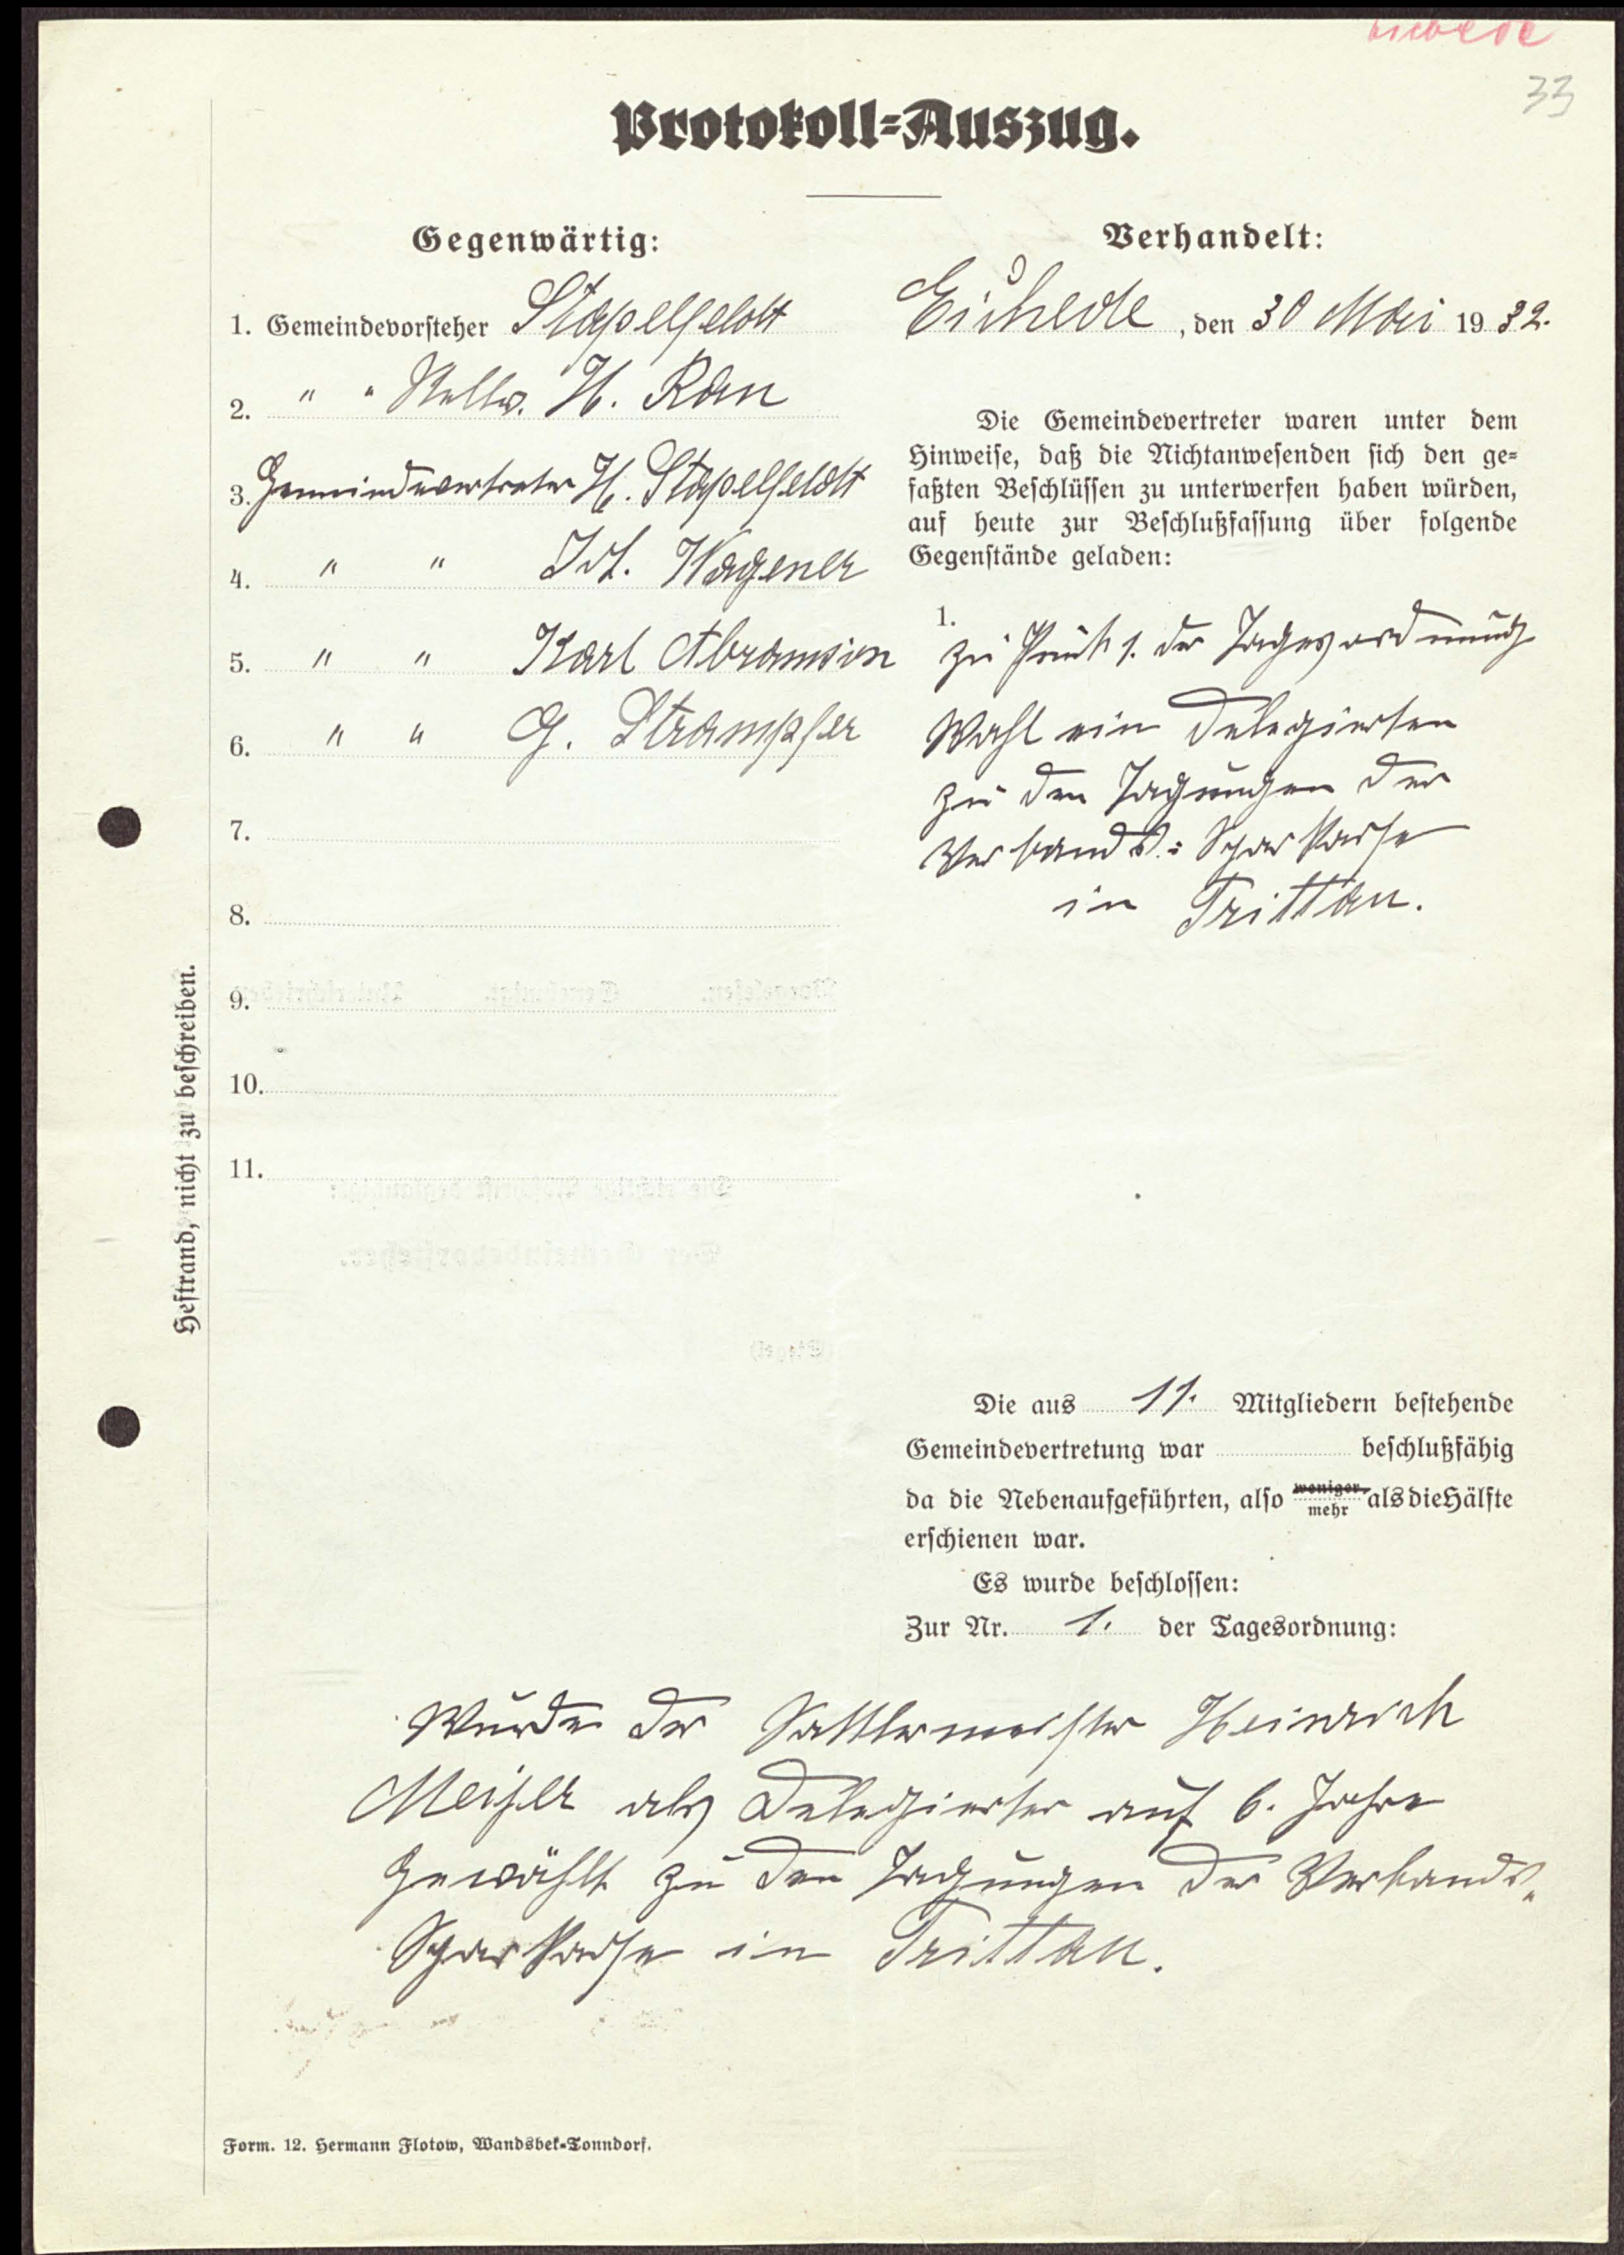 Eichede
33
Protokoll=Auszug.
Gegenwärtig:
1. Gemeindevorsteher Stapelfeldt
2. " " Stellv. H. Rau
3. Gemeindevertreter H. Stapelfeldt
4. " " Joh. Wagener
5. " " Karl Abramsin
6. " " G. Strampfer
7.
8.
9.
10.
11.
Verhandelt:
Eichede, den 30 Mai 1932.
Die Gemeindevertreter waren unter dem
Hinweise, daß die Nichtanwesenden sich den ge=
faßten Beschlüssen zu unterwerfen haben würden,
auf heute zur Beschlußfassung über folgende
Gegenstände geladen:
1.
zu Punkt 1. der Tagesordnung
Wahl ein Delegierten
zu den Tagungen der
Verbands.= Sparkasse
in Trittau.
Die aus 11. Mitgliedern bestehende
Gemeindevertretung war beschlußfähig
da die Nebenaufgeführten, also weniger mehr als die Hälfte
erschienen war.
Es wurde beschlossen:
Zur Nr. 1. der Tagesordnung:
Wurde der Sattlermeister Heinrich
Meiser als Delegierter auf 6. Jahre
Gewählt zu den Tagungen der Verbands„
Sparkasse in Trittau.
Heftrand, nicht zu beschreiben.
Form. 12. Hermann Flotow, Wandsbek=Tonndorf.